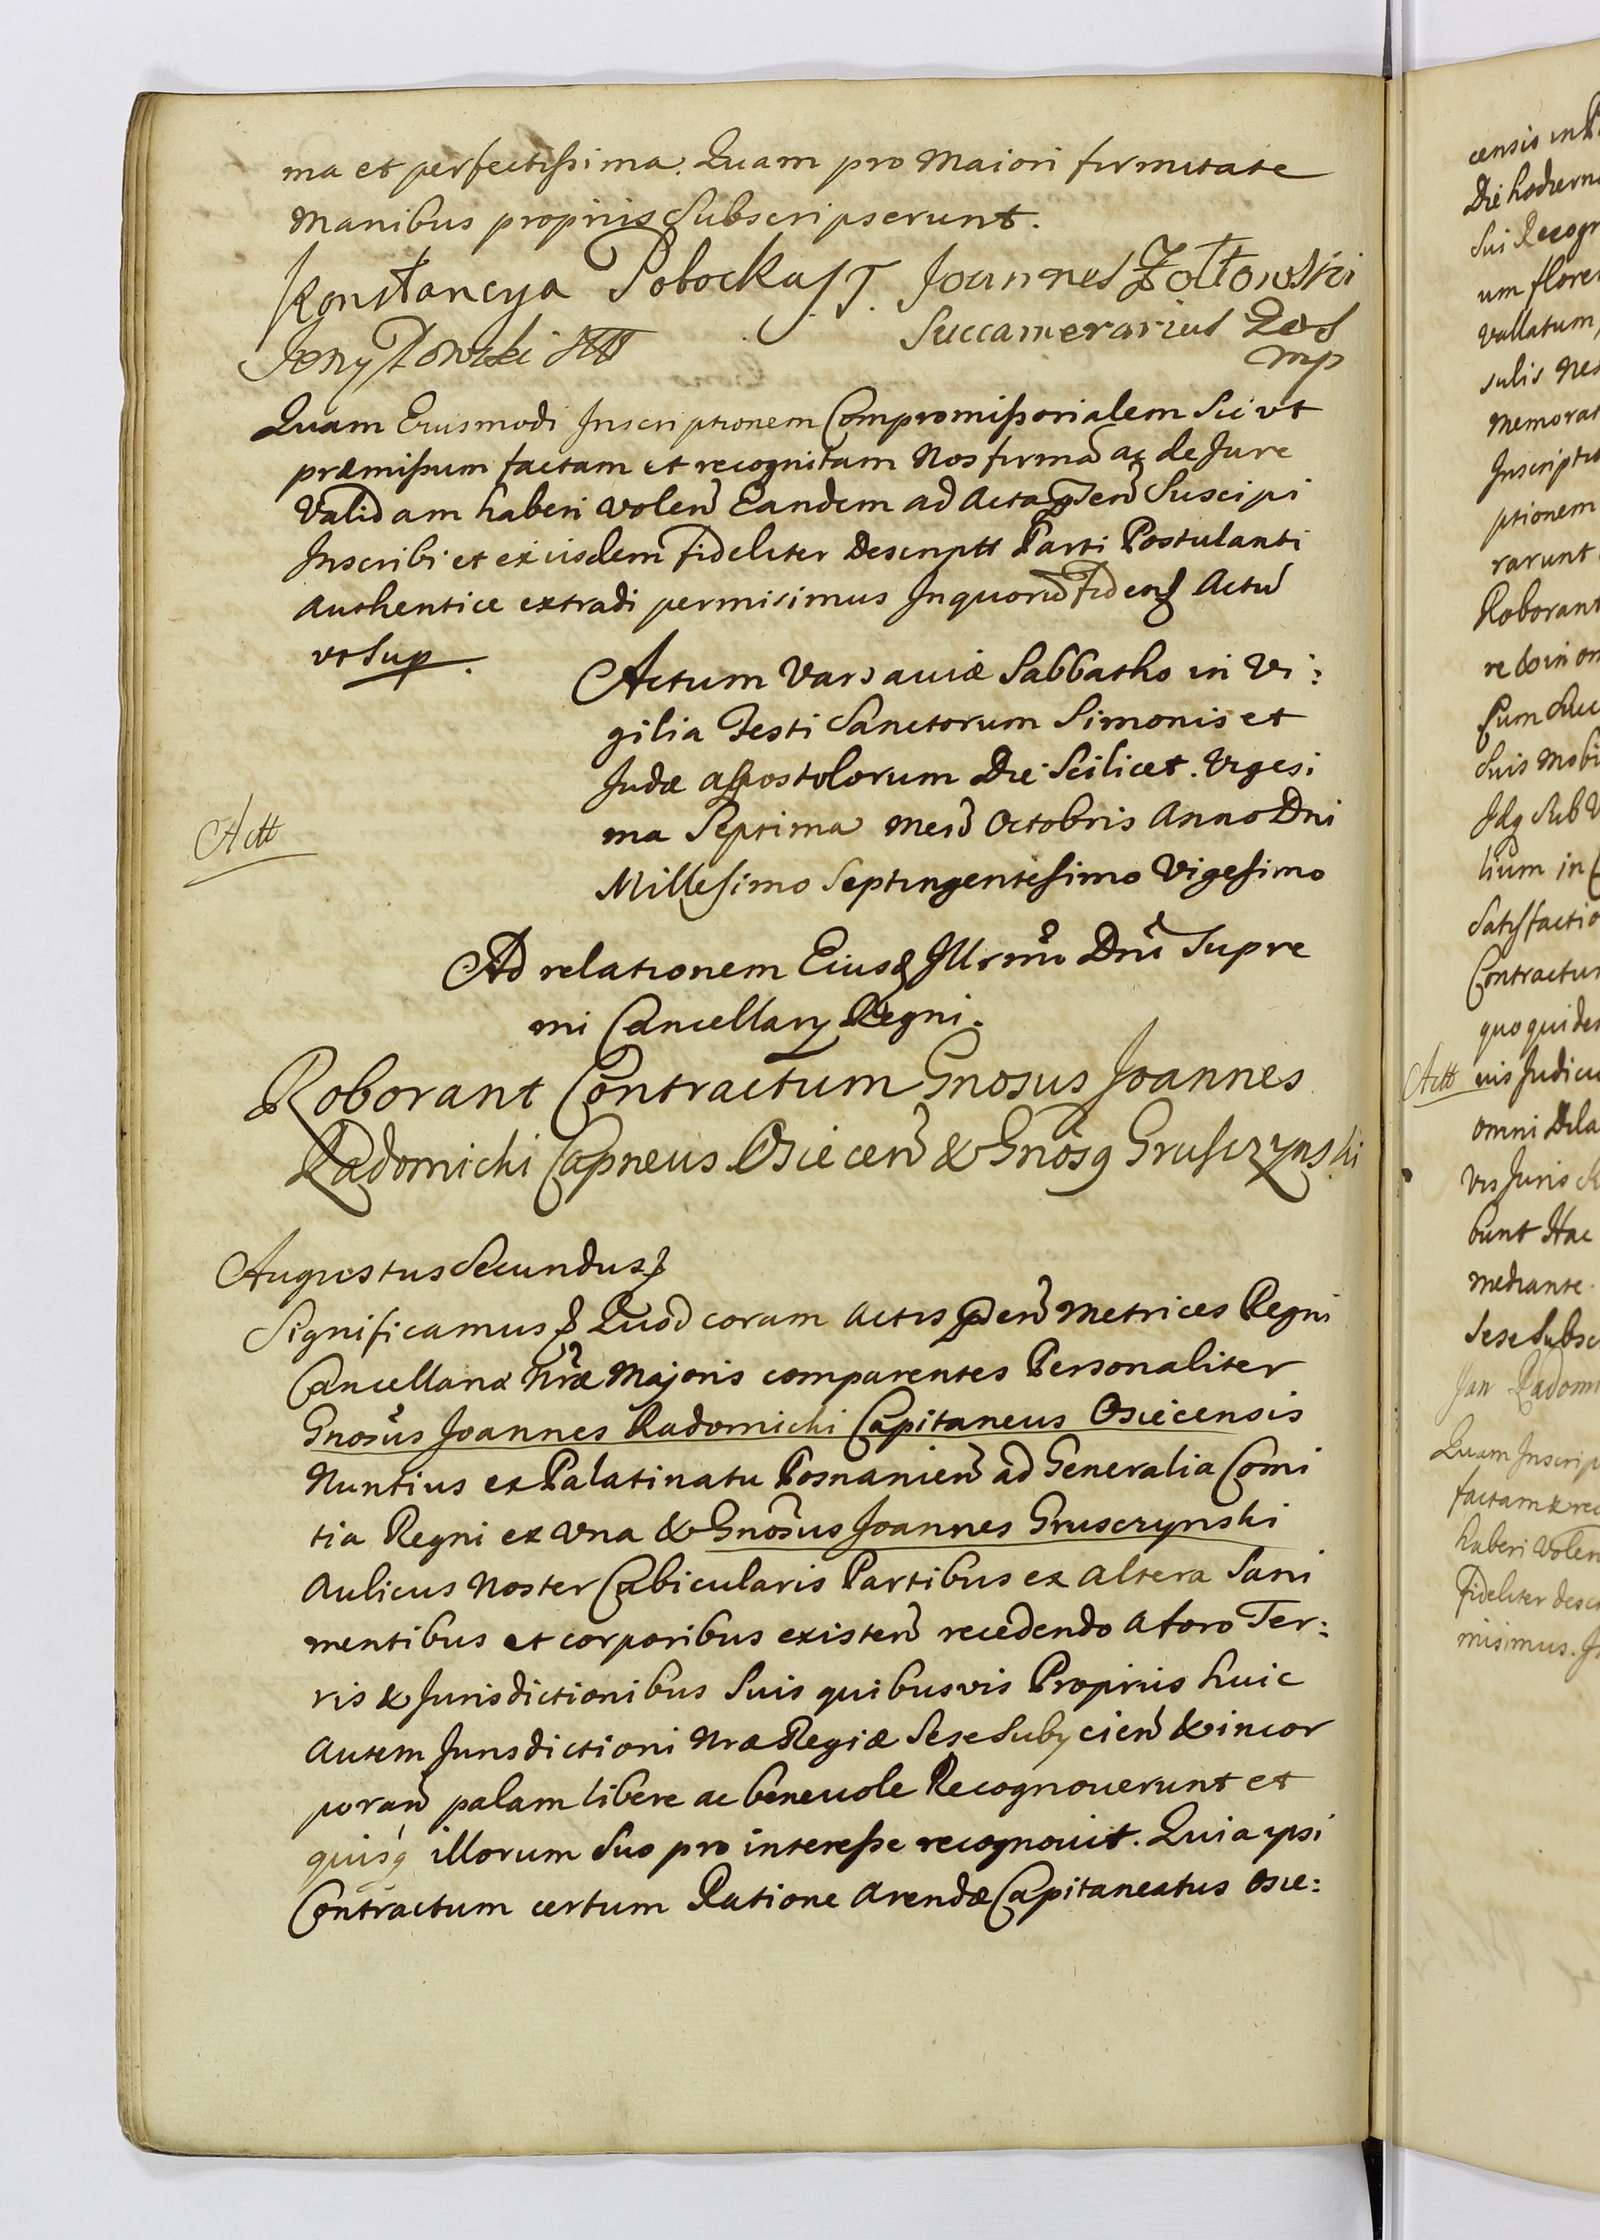 ma et perfectissima. Quam pro Maiori firmitate
Manibus propriis Subscripserunt.
Konstancya Potocka S.T. Joannes Zołtowski
Succamerarius
mp
Quam Eiusmodi Inscriptionem Compromissorialem Sic vt
præmissum factam et recognitam Nos firmã ac de Jure
Validam haberi volen Eandem ad Acta pñten Suscipi
Inscribi et ex iisdem fideliter Descriptt Parti Postulanti
Authentice extradi permisimus In quorũ fidem Actũ
vt Sup.
Actum Varsauiæ Sabbatho in Vi:
gilia Festi Sanctorum Simonis et
Judæ Apostolorum Die Scilicet. Vigesi
ma Septima Mens Octobris Anno Dni
Millesimo Septingentesimo Vigesimo
Actt
Ad relationem Eiusd Illrmi Dni Supre
mi Cancellarÿ Regni.
Roborant Contractum Gnosus Joannes
Radomicki Capneus Osiecen & Gnosq Grusczynski
Augustus Secundus &
Significamus & Quod coram Actis pñten Metrices Regni
Cancellariæ Nræ Majoris comparentes Personaliter
Gnosus Joannes Radomicki Capitaneus Osiecensis
Nuntius ex Palatinatu Posnanien ad Generalia Comi
tia Regni ex Vna & Gnosus Joannes Grusczynski
Aulicus Noster Cabicularis Partibus ex Altera Sani
mentibus et corporibus existen recedendo a foro Ter:
ris & Jurisdictionibus Suis quibusvis Propriis huic
Autem Jurisdictioni Nræ Regiæ Sese Subÿcien & incor
poran palam libere ac beneuole Recognouerunt et
quisq illorum Suo pro interesse recognouit. Quia ipsi
Contractum certum Ratione Arendæ Capitaneatus Osie:
Die hodierna
Sui Recogn
um floren
Vallatum
sulis Nes
Memorat
Inscriptio
ptionem
rarunt
Roborant
Suis Mobi
lium in
Satisfactio
Contractum
quo quidem
Actt
uis Judicii
omni Dila
vis Juris
bunt Hac
mediante
Sese Subsc
Jan Radomi
Quam Inscrip
factam & rec
haberi volen
fideliter desc
misimus. In